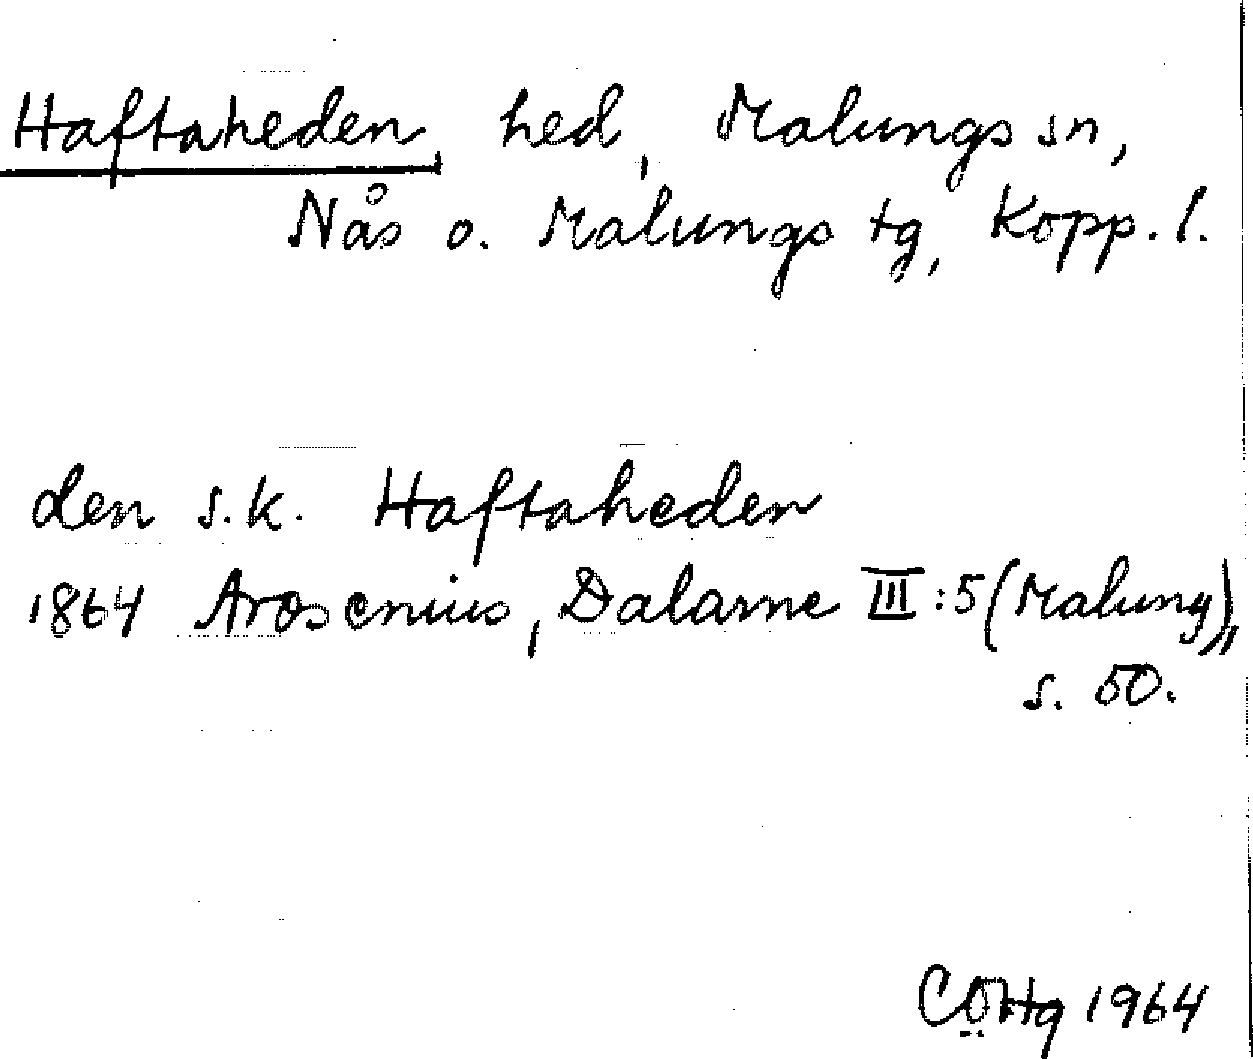 Haftaheden, hed, Malungs sn,
Nås o. Malungs tg, Kopp. l.
den s.k. Haftaheden
1864 Arosenius, Dalarne III:5 (Malung),
s. 50.
CÖHg 1964